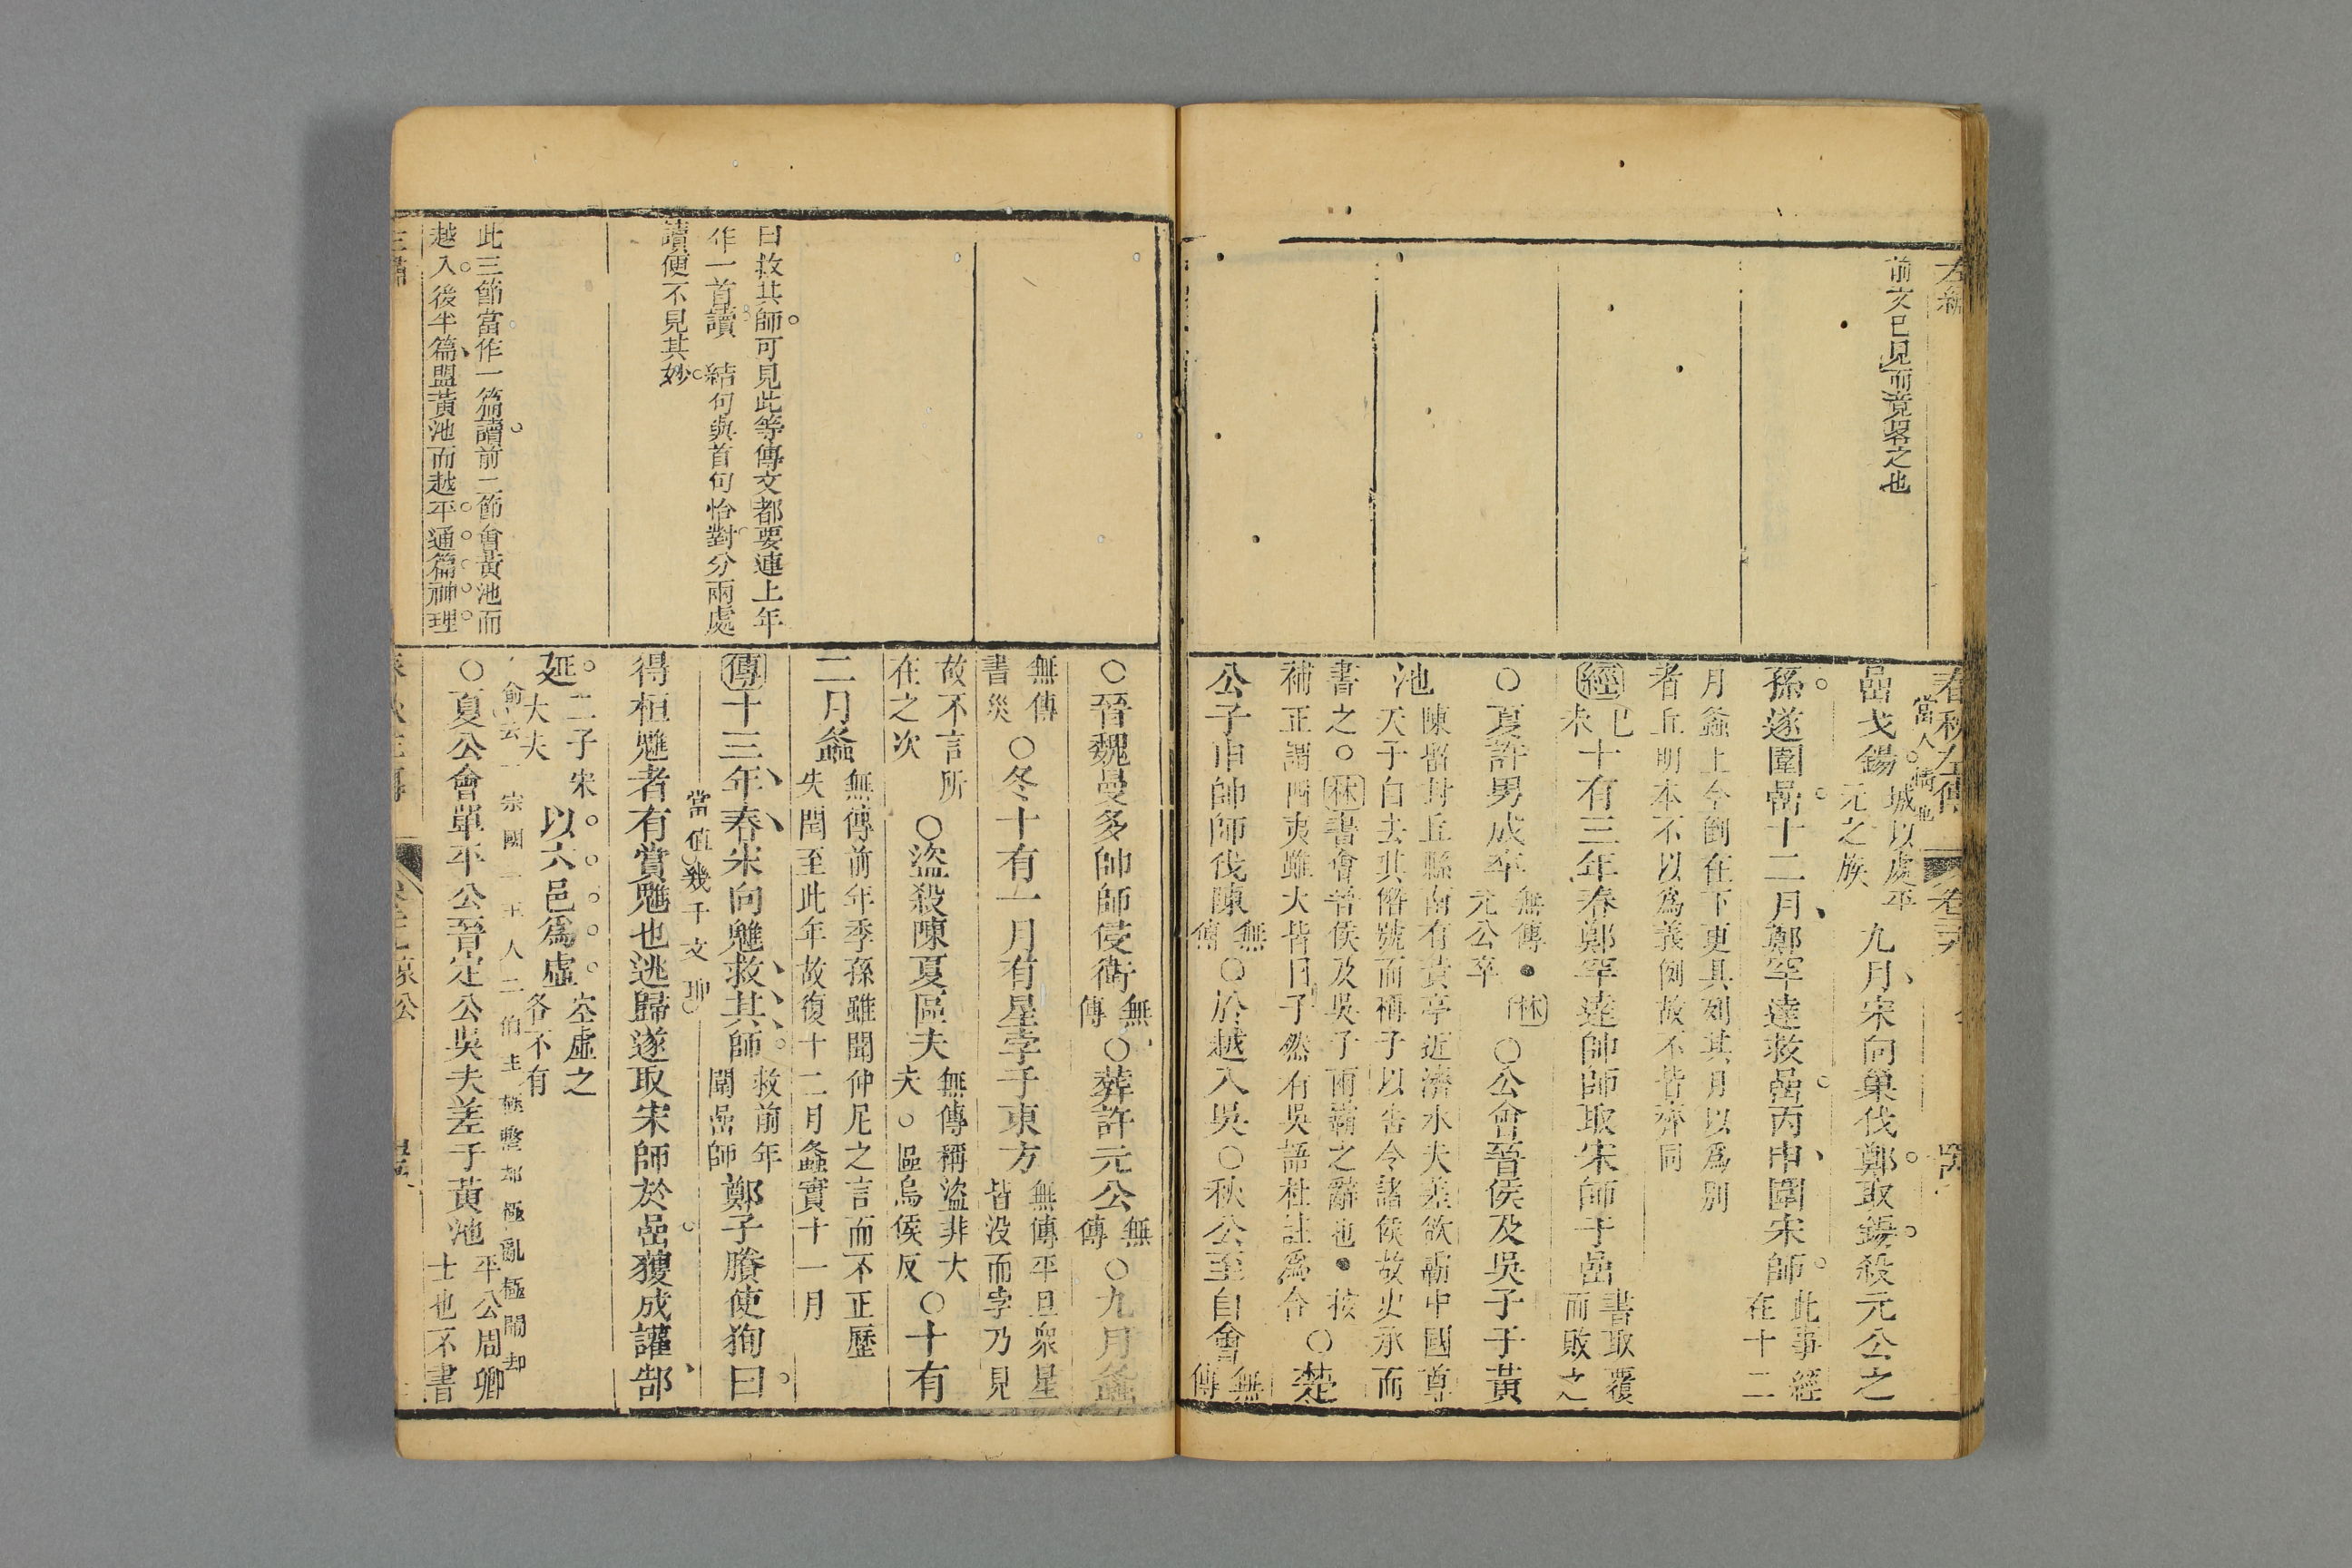 左繡
前文已見而竟畧之也
春秋左傳
卷三
當人
嵒戈鍚
城以處平
元之族
九月宋向巢伐鄭取鍚殺元公之
孫遂圍嵒十二月鄭罕達救嵒丙申圍宋師
此事經
在十二
月螽上今倒在下更具列其月以爲別
者丘明本不以爲義例故不皆齊同
經
已
未
十有三年春鄭罕達帥師取宋師于嵒
書取覆
而敗之
○夏許男成卒
無傳●林
元公卒
○公會晉侯及吳子于黃
池
陳留封丘縣南有黃亭近濟水夫差欲霸中國尊
天子自去其僭號而稱子以告令諸侯故史承而
書之○林書會晉侯及吳子兩霸之辭也●按
補正謂四夷雖大皆曰子然有吳語杜註爲合
○楚
公子申帥師伐陳
無
傳
○於越入吳○秋公至自會
無
傳
○晉魏曼多帥師侵衞
無
傳
○葬許元公
無
傳
○九月螽
無傳
書災
○冬十有一月有星孛于東方
無傳平旦衆星
皆沒而孛乃見
故不言所
在之次
○盜殺陳夏區夫
無傳稱盜非大
夫○區烏侯反
○十有
二月螽
無傳前年季孫雖聞仲尼之言而不正歷
失閏至此年故復十二月螽實十一月
曰救其師可見此等傳文都要連上年
作一首讀 結句與首句恰對分兩處
讀便不見其妙
傳十三年春宋向魋救其師
救前年
圍嵒師
鄭子賸使狥曰
當值幾千文
得桓魋者有賞魋也逃歸遂取宋師於嵒獲成讙郜
延
二子宋
大夫
以六邑爲虛
空虛之
各不有
此三節當作一篇讀前二節會黃池而
越入後半篇盟黃池而越平通篇神理
俞云一宗國一王人二伯主極整却極亂極鬧却
○夏公會單平公晉定公吳夫差于黃池
平公周卿
士也不書